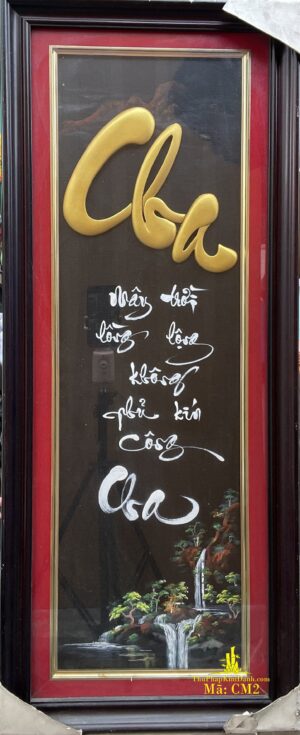 Cha
Mây trời
lồng lộng
không
phủ kín
công
Cha
ThuPhapKimDanh.com
Mã: CM2